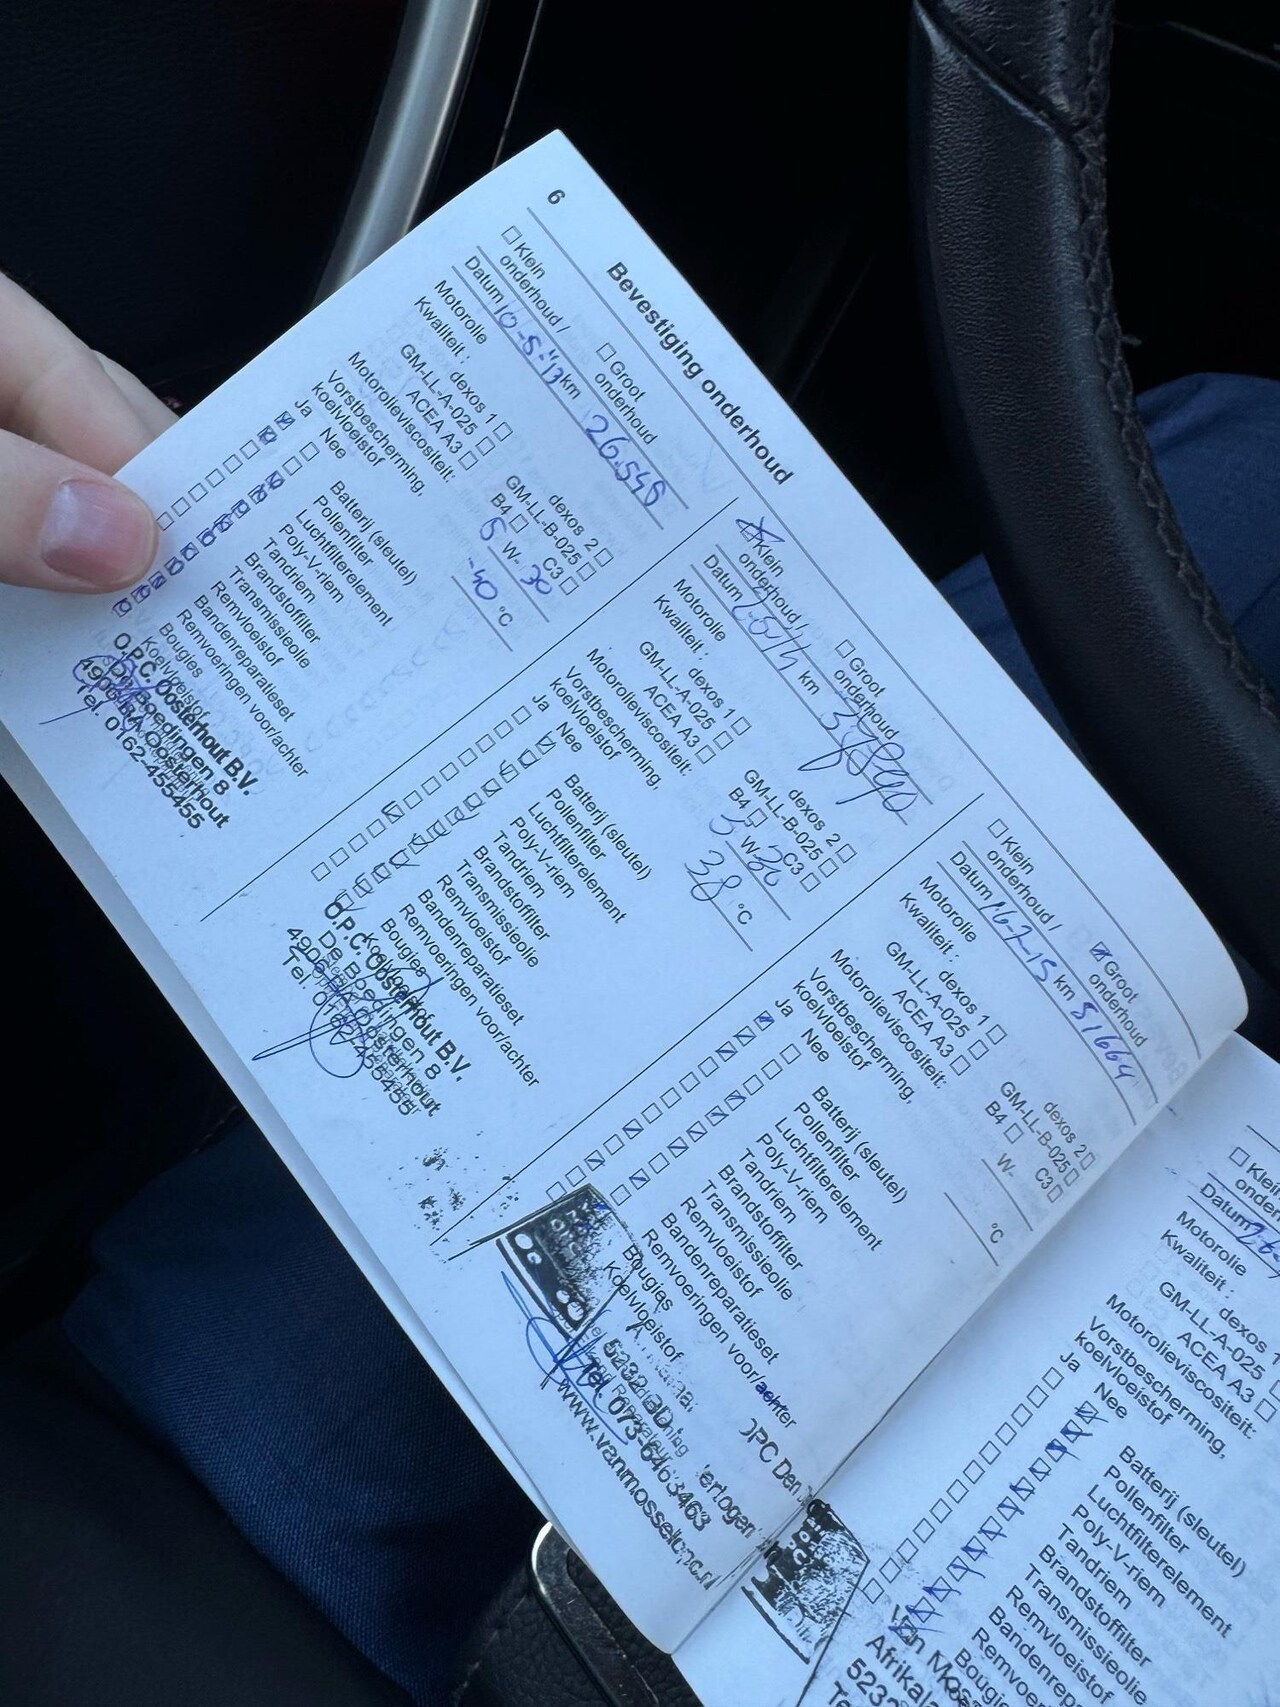 6
Bevestiging onderhoud
Klein onderhoud /
Groot onderhoud
Datum 16-5-'13 km 26.548
Motorolie
Kwaliteit :
dexos 1
dexos 2
GM-LL-A-025
GM-LL-B-025
ACEA A3
B4
C3
Motorolieviscositeit: 5 W- 30
Vorstbescherming,
koelvloeistof -40 °C
Ja
Nee
Batterij (sleutel)
Pollenfilter
Luchtfilterelement
Poly-V-riem
Tandriem
Brandstoffilter
Transmissieolie
Remvloeistof
Bandenreparatieset
Remvoeringen voor/achter
Bougies
Koelvloeistof
O.P.C. Oosterhout B.V.
De Boedingen 8
4906 BA Oosterhout
Tel. 0162-455455
Klein onderhoud /
Groot onderhoud
Datum km
Motorolie
Kwaliteit :
dexos 1
dexos 2
GM-LL-A-025
GM-LL-B-025
ACEA A3
B4
C3
Motorolieviscositeit: 5 W- 30
Vorstbescherming,
koelvloeistof 38 °C
Ja
Nee
Batterij (sleutel)
Pollenfilter
Luchtfilterelement
Poly-V-riem
Tandriem
Brandstoffilter
Transmissieolie
Remvloeistof
Bandenreparatieset
Remvoeringen voor/achter
Bougies
Koelvloeistof
O.P.C. Oosterhout B.V.
De Boedingen 8
4906 BA Oosterhout
Tel. 0162-455455
Klein onderhoud /
Groot onderhoud
Datum 16-7-15 km 51664
Motorolie
Kwaliteit :
dexos 1
dexos 2
GM-LL-A-025
GM-LL-B-025
ACEA A3
B4
C3
Motorolieviscositeit: W-
Vorstbescherming,
koelvloeistof °C
Ja
Nee
Batterij (sleutel)
Pollenfilter
Luchtfilterelement
Poly-V-riem
Tandriem
Brandstoffilter
Transmissieolie
Remvloeistof
Bandenreparatieset
Remvoeringen voor/achter
Bougies
Koelvloeistof
OPC Den
5232 BD
Tel. 073-6463463
www.vanmosselopc.nl
Klein
onder
Datum
Motorolie
Kwaliteit :
dexos 1
GM-LL-A-025
ACEA A3
Motorolieviscositeit:
Vorstbescherming,
koelvloeistof
Ja
Nee
Batterij (sleutel)
Pollenfilter
Luchtfilterelement
Poly-V-riem
Tandriem
Brandstoffilter
Transmissieolie
Remvloeistof
Bandenre
Remvoe
Bougie
Van Mos
Afrikala
5232